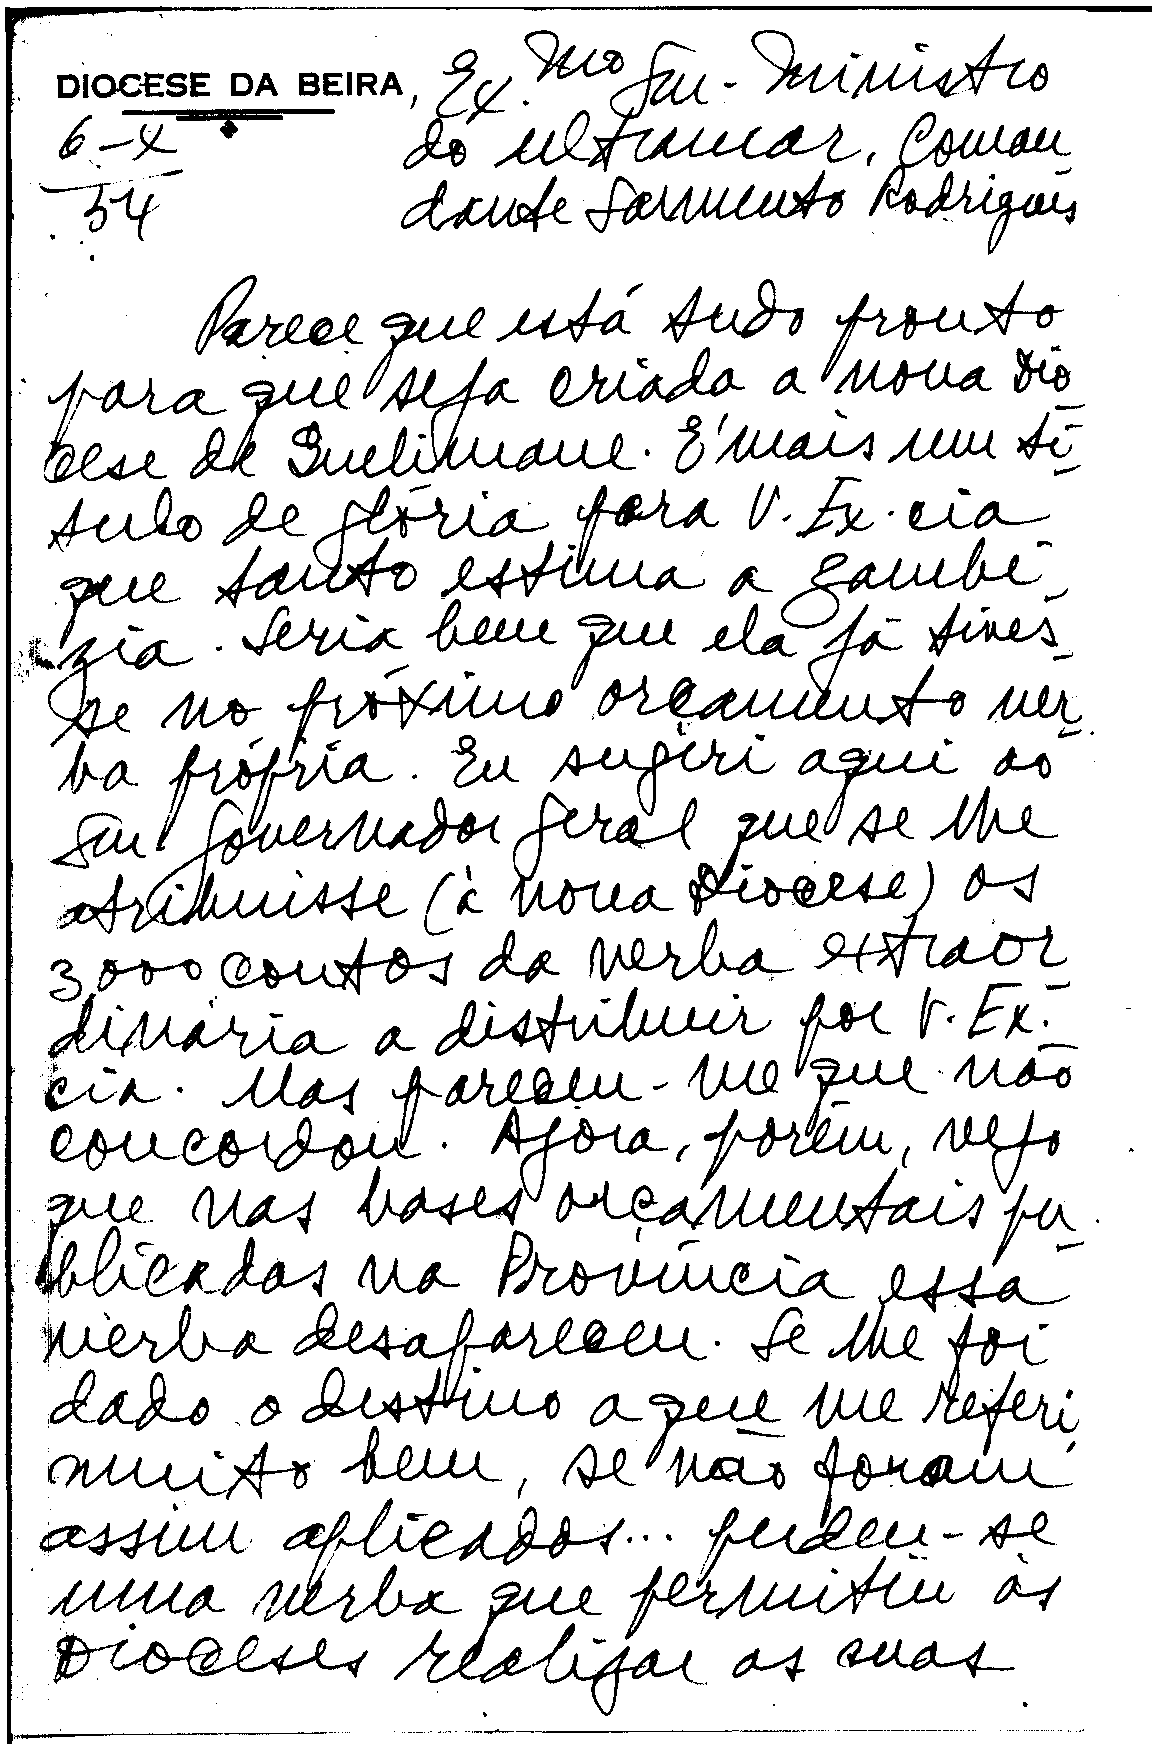 DIOCESE DA BEIRA, Ex.mo Snr. Ministro
6-X do Ultramar, Coman
54 dante Sarmento Rodrigues
Parece que está tudo pronto
para que seja criada a nova Dio
cese de Quelimane. É mais um tí
tulo de glória para V. Ex.cia
que tanto estima a Zambé
zia. Seria bem que ela já tives
se no próximo orçamento ver
ba própria. Eu sugeri aqui ao
Snr Governador Geral que se lhe
atribuisse (à nova Diocese) os
3.000 contos da verba extraor
dinária a distribuir por V. Ex.
cia. Mas pareceu-me que não
concordou. Agora, porém, vejo
que nas bases orçamentais pu
blicadas na Província essa
verba desapareceu. Se lhe foi
dado o destino a que me referi
muito bem, se não foram
assim aplicados... perdeu-se
uma verba que permitiu às
Dioceses realizar as suas